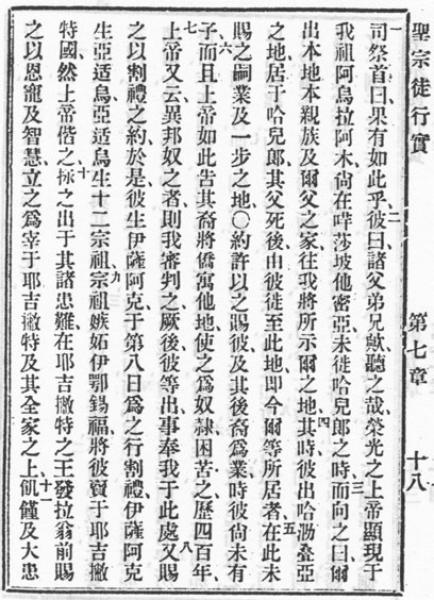 聖宗徒行實 第七章 十八
一司祭首曰、果有如此乎、二彼曰、諸父弟兄歟聽之哉、榮光之上帝顯現于
我祖阿烏拉阿木、尙在哶莎坡他密亞、未徙哈兒郎之時、三而向之曰、爾
出本地本親族及爾父之家、往我將所示爾之地、四其時彼出哈泐疊亞
之地、居于哈兒郎、其父死後、由彼徙至此地、即今爾等所居者、五在此未
賜之嗣業及一步之地、〇約許以之賜彼及其後裔爲業、時彼尙未有
子、六而且上帝如此告、其裔將僑寓他地、使之爲奴隸困苦之歷四百年、
七上帝又云、異邦奴之者、則我審判之、厥後彼等出、事奉我于此處、八又賜
之以割禮之約、於是彼生伊薩阿克、于第八日爲之行割禮、伊薩阿克
生亞适烏、亞适烏生十二宗祖、九宗祖嫉妬伊鄂錫福、將彼賣于耶吉撇
特國、然上帝偕之、十拯之出于其諸患難、在耶吉撇特之王發拉翁前、賜
之以恩寵及智慧、立之爲宰于耶吉撇特及其全家之上、十一飢饉及大患